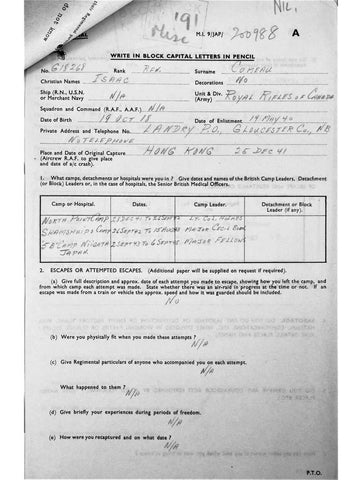 '91
NIL.
M.I. 9/JAP/ 200988 A
WRITE IN BLOCK CAPITAL LETTERS IN PENCIL
No. G18268 Rank RFN. Surname COMEAU
Christian Names ISAAC Decorations NO
Ship (R.N., U.S.N. or Merchant Navy N/A Unit & Div. (Army) ROYAL RIFLES OF CANADA
Squadron and Command (R.A.F., A.A.F.) N/A
Date of Birth 19 OCT 18 Date of Enlistment 19 MAY 40
Private Address and Telephone No. LANDRY P.O., GLOUCESTER CO., NB
NO TELEPHONE
Place and Date of Original Capture HONG KONG 25 DEC 41
(Aircrew R.A.F. to give place
and date of a/c crash).
1. What camps, detachments or hospitals were you in ? Give dates and names of the British Camp Leaders, Detachment
(or Block) Leaders or, in the case of hospitals, the Senior British Medical Officers.
Camp or Hospital. Dates. Camp Leader. Detachment or Block Leader (if any).
NORTH POINT CAMP
SHAMSHUIPO CAMP MAJOR CECIL
5B CAMP NIIGATA MAJOR FELLOWS
JAPAN
2. ESCAPES OR ATTEMPTED ESCAPES. (Additional paper will be supplied on request if required).
(a) Give full description and approx. date of each attempt you made to escape, showing how you left the camp, and
from which camp each attempt was made. State whether there was an air-raid in progress at the time or not. If an
escape was made from a train or vehicle the approx. speed and how it was guarded should be included.
NO
(b) Were you physically fit when you made these attempts ?
N/A
(c) Give Regimental particulars of anyone who accompanied you on each attempt.
N/A
What happened to them ? N/A
(d) Give briefly your experiences during periods of freedom.
N/A
(e) How were you recaptured and on what date ?
N/A
P.T.O.